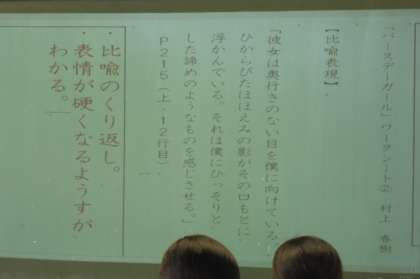 「バースデーガール」ワークシート② 村上 春樹
【比喩表現】
「彼女は奥行きのない目を僕に向けている。
ひからびたほほえみの影がその口もとに
浮かんでいる。それは僕にひっそりと
した諦めのようなものを感じさせる。」
P215(上・12行目)
・比喩のくり返し。
・表情が硬くなるようすが
わかる。